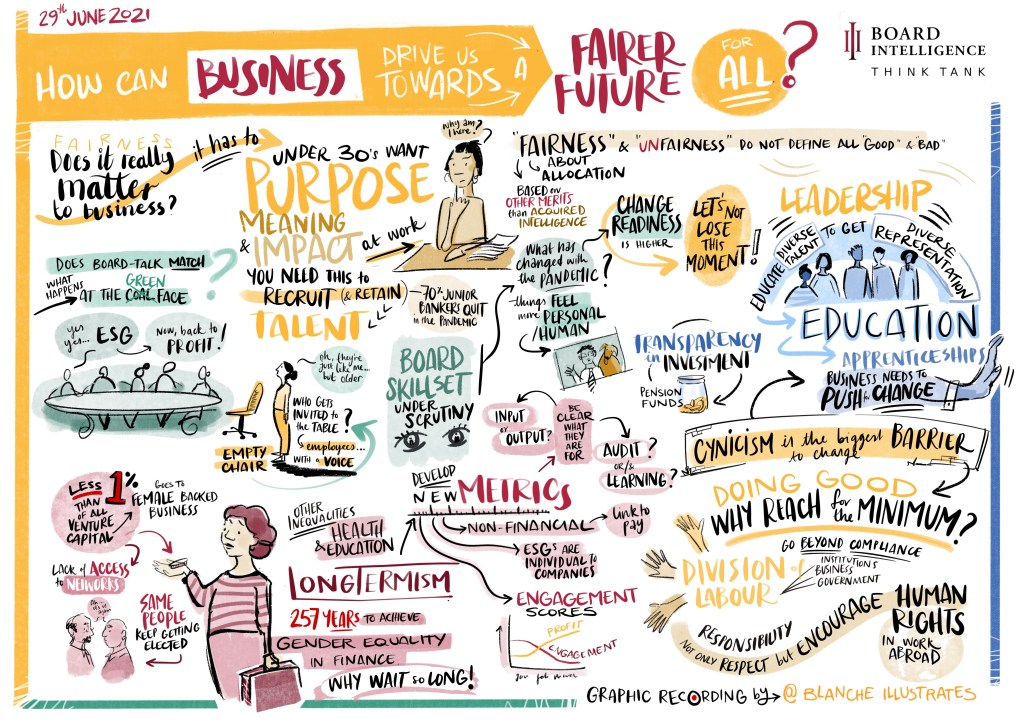 29th JUNE 2021
HOW CAN
BUSINESS
DRIVE US
TOWARDS
A
FAIRER
FUTURE
FOR
ALL
?
BOARD
INTELLIGENCE
THINK TANK
FAIRNESS
Does it really
matter
to business?
it has to
UNDER 30's WANT
PURPOSE
MEANING
& IMPACT
at work
YOU NEED THIS to
RECRUIT (& RETAIN)
TALENT
70% JUNIOR
BANKERS QUIT
in the PANDEMIC
why am
I here?
"FAIRNESS" & "UNFAIRNESS" DO NOT DEFINE ALL "GOOD" & "BAD"
ABOUT
ALLOCATION
BASED on
OTHER MERITS
than ACQUIRED
INTELLIGENCE
CHANGE
READINESS
IS HIGHER
LET'S
NOT
LOSE
THIS
MOMENT!
What has
changed with
the PANDEMIC?
things FEEL
more PERSONAL
/HUMAN
LEADERSHIP
EDUCATE DIVERSE
TALENT TO GET DIVERSE
REPRESENTATION
EDUCATION
APPRENTICESHIPS
BUSINESS NEEDS to
PUSH for CHANGE
DOES BOARD-TALK MATCH
WHAT
HAPPENS
GREEN
AT THE COAL FACE
?
yes
yes...
ESG
Now, back to
PROFIT!
oh, they're
just like me...
but older
WHO GETS
INVITED to
the TABLE?
employees...
WITH a VOICE
EMPTY
CHAIR
BOARD
SKILLSET
UNDER
SCRUTINY
TRANSPARENCY
in INVESTMENT
PENSION
FUNDS
INPUT
or
OUTPUT?
BE
CLEAR
WHAT
THEY
ARE
FOR
AUDIT?
or/&
LEARNING?
CYNICISM is the biggest BARRIER
to change
DEVELOP
NEW METRICS
NON-FINANCIAL
link to
pay
ESGs ARE
INDIVIDUAL to
COMPANIES
ENGAGEMENT
SCORES
PROFIT
ENGAGEMENT
LESS
THAN
1%
OF ALL
VENTURE
CAPITAL
GOES to
FEMALE BACKED
BUSINESS
LACK of ACCESS
to NETWORKS
SAME
PEOPLE
KEEP GETTING
ELECTED
OTHER
INEQUALITIES
HEALTH
& EDUCATION
LONGTERMISM
257 YEARS to ACHIEVE
GENDER EQUALITY
IN FINANCE
WHY WAIT so LONG!
DOING GOOD
WHY REACH for the MINIMUM?
GO BEYOND COMPLIANCE
DIVISION of
LABOUR
INSTITUTIONS
BUSINESS
GOVERNMENT
RESPONSIBILITY
NOT ONLY RESPECT but ENCOURAGE
HUMAN
RIGHTS
IN WORK
ABROAD
GRAPHIC RECORDING by → @ BLANCHE ILLUSTRATES